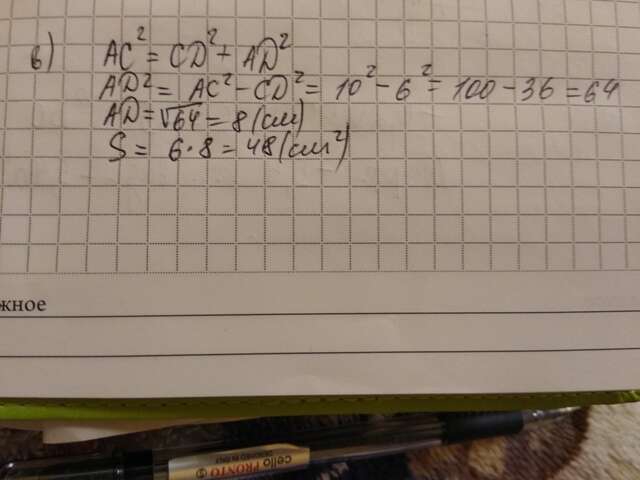 в) AC² = CD² + AD²
AD² = AC² - CD² = 10² - 6² = 100 - 36 = 64
AD = √64 = 8 (см)
S = 6·8 = 48 (см²)
жное
cello PRONTO